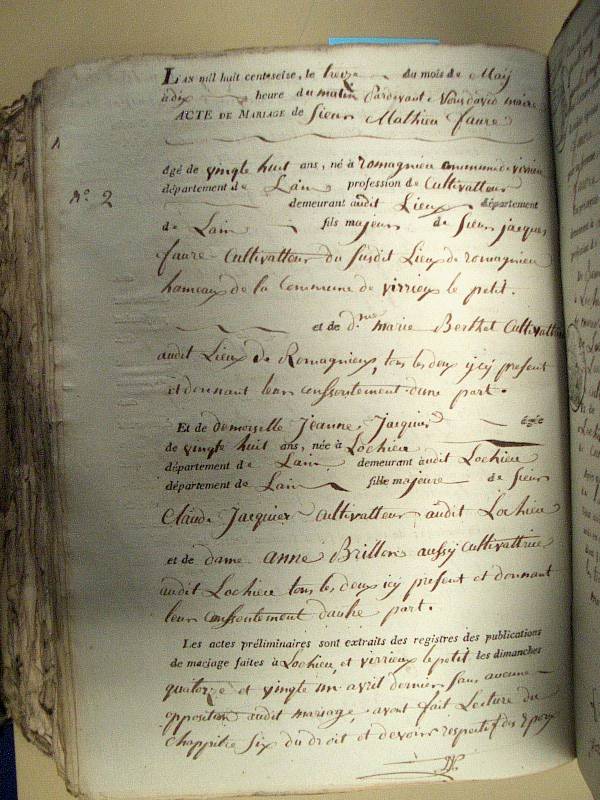 L'AN mil huit cent seize, le treize du mois de Maij
à dix heure du matin Pardevant Nous david maire
ACTE DE MARIAGE de Sieur Mathieu faure
âgé de vingte huit ans, né à romagnieu commune de virieu
n.º 2
département de Lain profession de Cultivatteur
demeurant audit Lieux département
de Lain fils majeur de Sieur jacques
faure Cultivatteur du susdit Lieux de romagnieu
hameaux de la Commune de virrieux le petit.
et de d.me marie Berthet Cultivattrice
audit Lieux de Romagnieux, tous les deux ycy present
et donnant leur conssentement d'une part.
Et de demoiselle Jeanne Jacquier âgée
de vingte huit ans, née à Lochieu
département de Lain demeurant audit Lochieu
département de Lain fille majeure de Sieur
Claude Jacquier Cultivatteur audit Lochieu
et de dame anne Brillon aussy Cultivattrice
audit Lochieu tous les deux icy present et donnant
leur conssentement dautre part.
Les actes préliminaires sont extraits des registres des publications
de mariage faites à Lochieu, et virrieux le petit les dimanches
quatorze et vingte un avril dernier sans aucune
opposition audit mariage, avont fait Lecture du
Chappitre Six du droit et devoirs respectif des Epoux